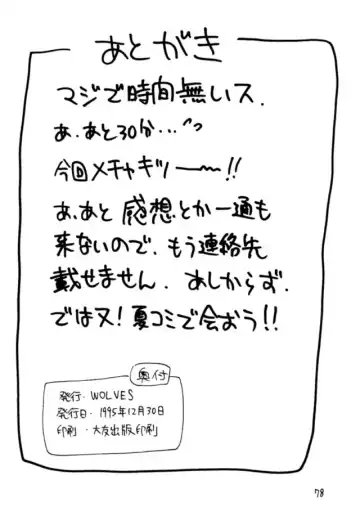 あとがき
マジで時間無いス.
あ、あと30分…
今回メチャキツー――!!
あ、あと 感想とか一通も
来ないので、もう連絡先
載せません. あしからず.
では又! 夏コミで会おう!!
奥付
発行・WOLVES
発行日・1995年12月30日
印刷・大友出版印刷
78